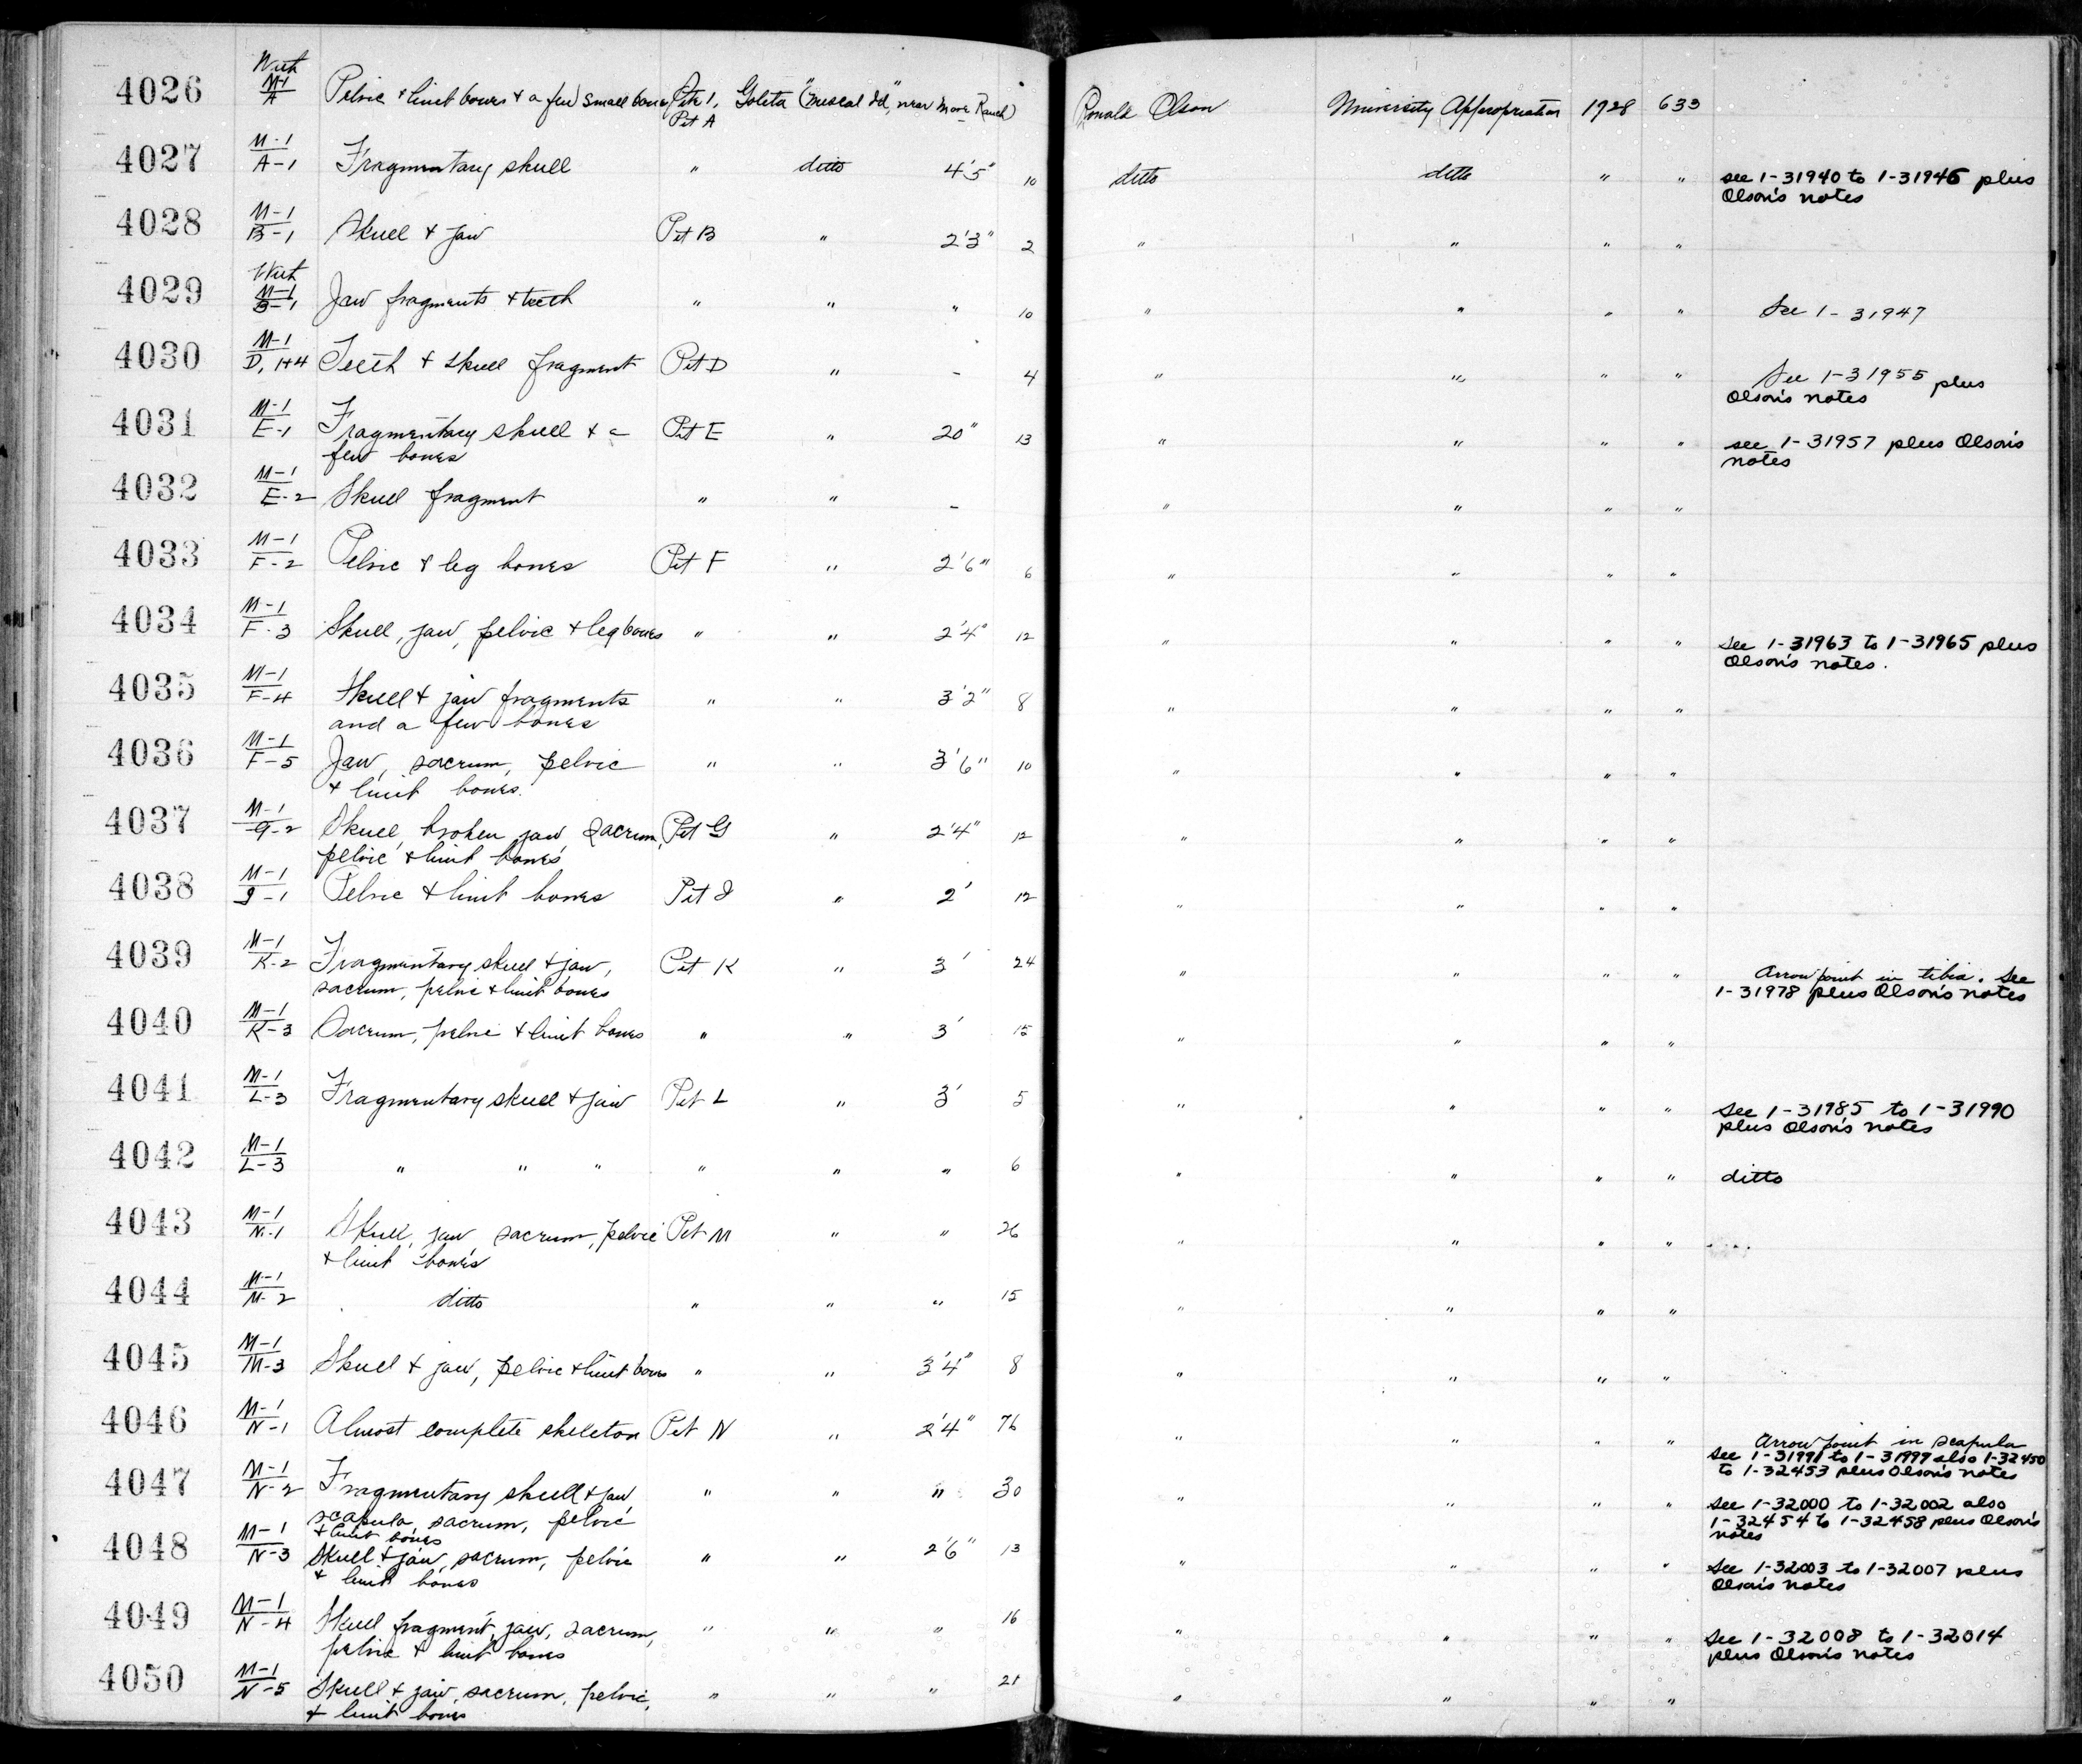 4026 With M-1/A Pelvic & limb bones & a few small bones Site 1, Pit A Goleta ("Mescal Id", near More Ranch) Ronald Olson University Appropriation 1928 633
4027 M-1/A-1 Fragmentary skull " ditto 4'5" 10 ditto ditto " " see 1-31940 to 1-31946 plus
Olson's notes
4028 M-1/B-1 Skull & jaw Pit B " 2'3" 2 " " " "
4029 With M-1/B-1 Jaw fragments & teeth " " " 10 " " " " See 1-31947
4030 M-1/D, 1+4 Teeth & skull fragment Pit D " - 4 " " " " See 1-31955 plus
Olson's notes
4031 M-1/E-1 Fragmentary skull & a Pit E " 20" 13 " " " " see 1-31957 plus Olson's
few bones notes
4032 M-1/E-2 Skull fragment " " - " " " "
4033 M-1/F-2 Pelvic & leg bones Pit F " 2'6" 6 " " " "
4034 M-1/F-3 Skull, jaw, pelvic & leg bones " " 2'4" 12 " " " " see 1-31963 to 1-31965 plus
Olson's notes.
4035 M-1/F-4 Skull & jaw fragments " " 3'2" 8 " " " "
and a few bones
4036 M-1/F-5 Jaw, sacrum, pelvic " " 3'6" 10 " " " "
& limb bones.
4037 M-1/G-2 Skull, broken jaw, sacrum, Pit G " 2'4" 12 " " " "
pelvic & limb bones
4038 M-1/J-1 Pelvic & limb bones Pit J " 2' 12 " " " "
4039 M-1/K-2 Fragmentary skull & jaw, Pit K " 3' 24 " " " " Arrow point in tibia. See
sacrum, pelvic & limb bones 1-31978 plus Olson's notes
4040 M-1/K-3 Sacrum, pelvic & limb bones " " 3' 15 " " " "
4041 M-1/L-3 Fragmentary skull & jaw Pit L " 3' 5 " " " " see 1-31985 to 1-31990
plus Olson's notes
4042 M-1/L-3 " " " " " " 6 " " " " ditto
4043 M-1/M-1 Skull, jaw, sacrum, pelvic Pit M " " 26 " " " "
& limb bones
4044 M-1/M-2 ditto " " " 15 " " " "
4045 M-1/M-3 Skull & jaw, pelvic & limb bones " " 3'4" 8 " " " "
4046 M-1/N-1 Almost complete skeleton Pit N " 2'4" 76 " " " " Arrow point in scapula
see 1-31991 to 1-31999 also 1-32450
to 1-32453 plus Olson's notes
4047 M-1/N-2 Fragmentary skull & jaw, " " " 30 " " " " see 1-32000 to 1-32002 also
scapula, sacrum, pelvic 1-32454 to 1-32458 plus Olson's
& limb bones notes
4048 M-1/N-3 Skull & jaw, sacrum, pelvic " " 2'6" 13 " " " " See 1-32003 to 1-32007 plus
& limb bones Olson's notes
4049 M-1/N-4 Skull fragment, jaw, sacrum, " " " 16 " " " " see 1-32008 to 1-32014
pelvic & limb bones plus Olson's notes
4050 M-1/N-5 Skull & jaw, sacrum, pelvic, " " " 21 " " " "
& limb bones